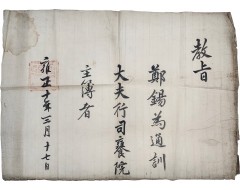 教旨
鄭錫為通訓
大夫行司饔院
主簿者
雍正十年二月十七日